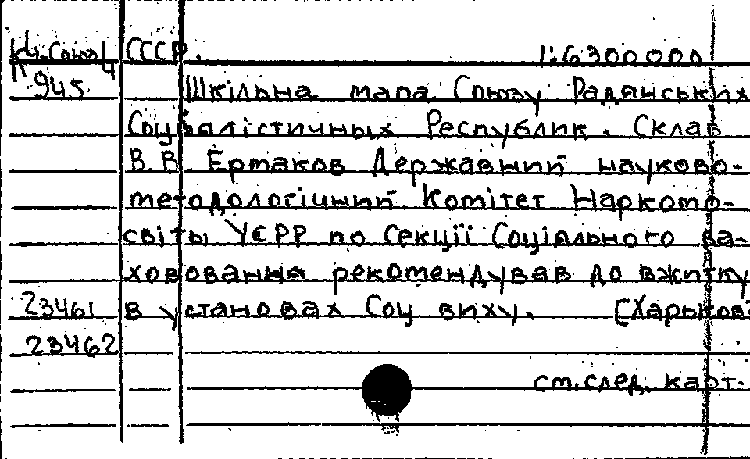 СССР. 1:6300000
945 Шкільна мапа Союзу Радянських
Соціялістичних Республик. Склав
В.В. Ермаков Державний науково-
методологічний Комітет Наркомо-
світы УСРР по секції Соціяльного ва-
ховования рекомендував до вжитку
23461 в установах Соц виху. [Харьков:
23462
см. след. карт-